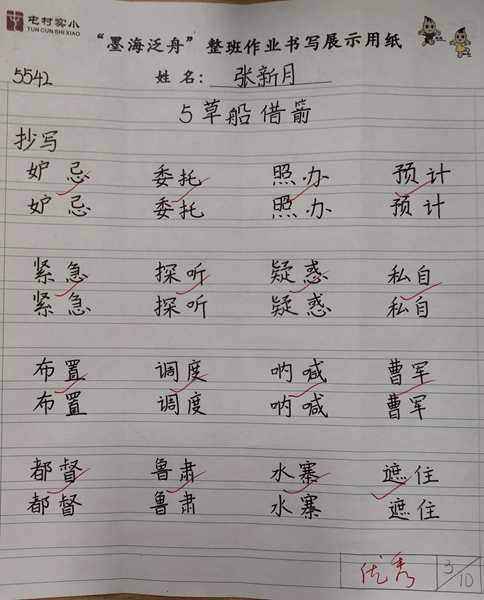 屯村实小
TUN CUN SHI XIAO
“墨海泛舟”整班作业书写展示用纸
5542 姓名: 张新月
5 草船借箭
抄写
妒忌 委托 照办 预计
妒忌 委托 照办 预计
紧急 探听 疑惑 私自
紧急 探听 疑惑 私自
布置 调度 呐喊 曹军
布置 调度 呐喊 曹军
都督 鲁肃 水寨 遮住
都督 鲁肃 水寨 遮住
优秀 3/10